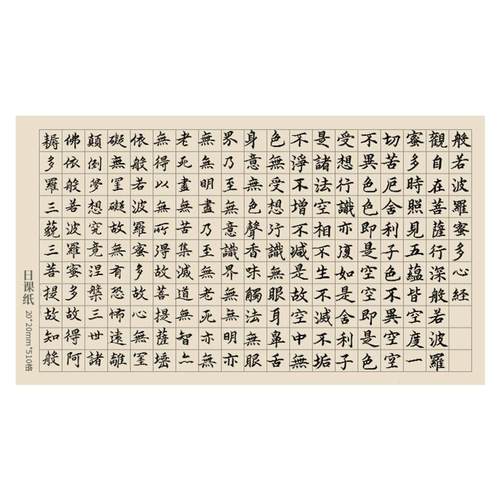 般若波羅蜜多心経
觀自在菩薩行深般若波羅
蜜多時照見五蘊皆空度一
切苦厄舍利子色不異空空
不異色色即是空空即是色
受想行識亦復如是舍利子
是諸法空相不生不滅不垢
不淨不增不減是故空中無
色無受想行識無眼耳鼻舌
身意無色聲香味觸法無眼
界乃至無意識界無無明亦
無無明盡乃至無老死亦無
老死盡無苦集滅道無智亦
無得以無所得故菩提薩埵
依般若波羅蜜多故心無罣
礙無罣礙故無有恐怖遠離
顛倒夢想究竟涅槃三世諸
佛依般若波羅蜜多故得阿
耨多羅三藐三菩提故知般
日课纸 20*20mm*510格